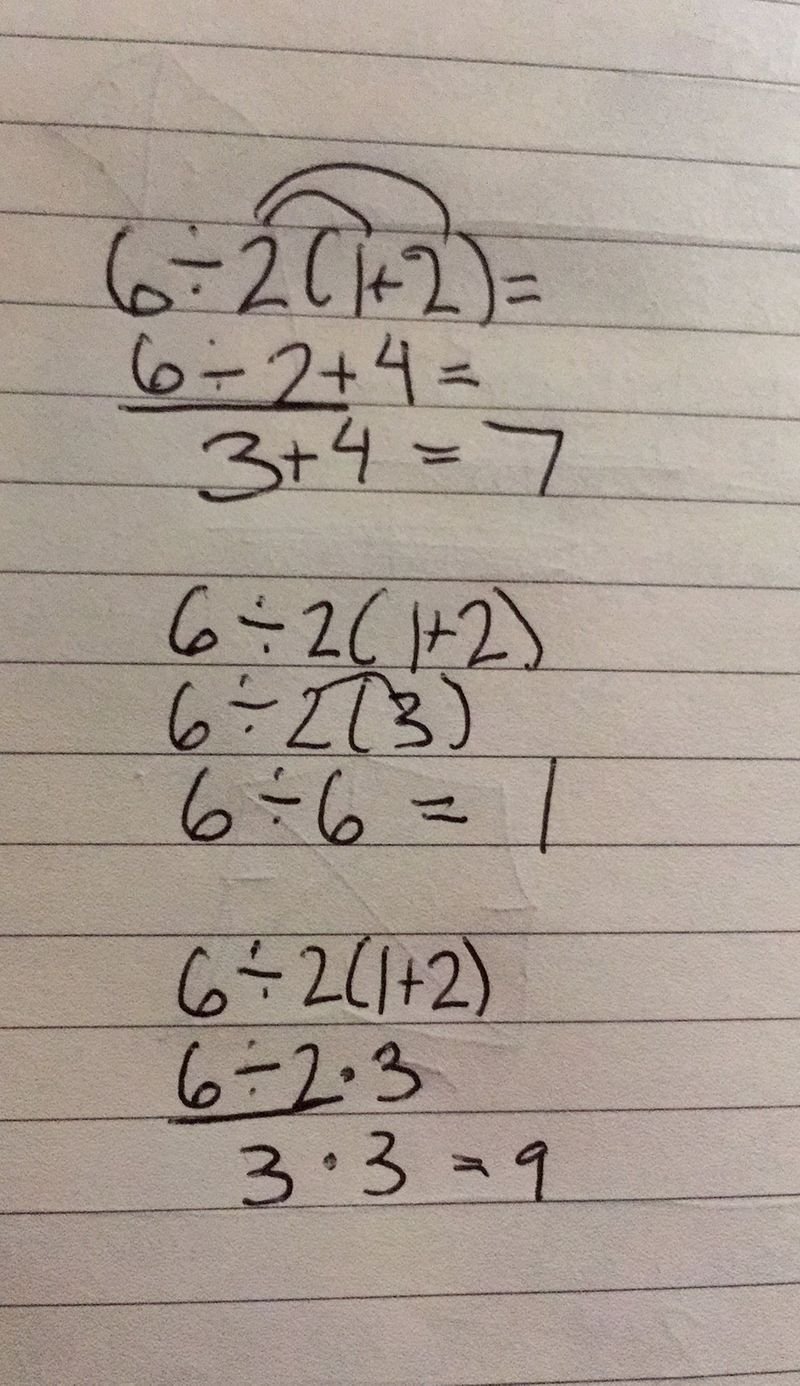 6÷2(1+2)=
6÷2+4=
3+4=7
6÷2(1+2)
6÷2(3)
6÷6=1
6÷2(1+2)
6÷2·3
3·3=9